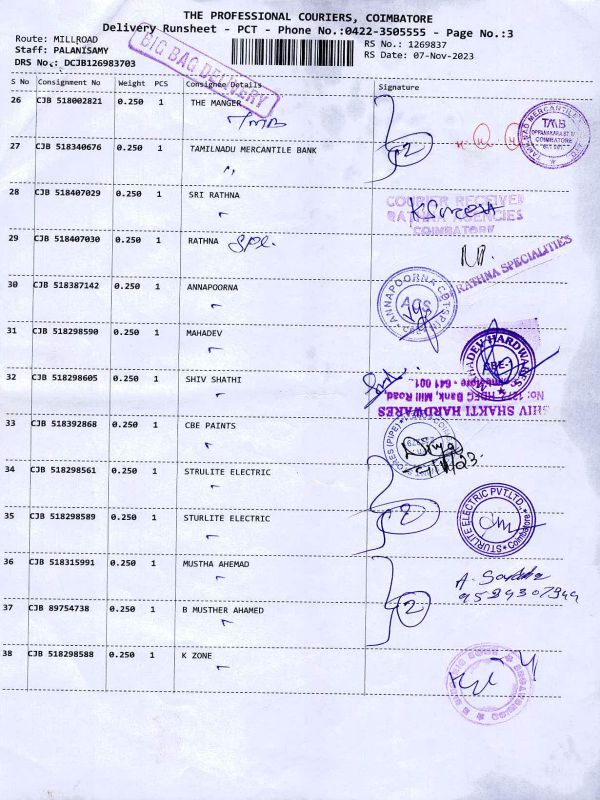 THE PROFESSIONAL COURIERS, COIMBATORE
Delivery Runsheet - PCT - Phone No.:0422-3505555 - Page No.:3
Route: MILLROAD
Staff: PALANISAMY
DRS No.: DCJB126983703
BIG BAG DELIVERY
RS No.: 1269837
RS Date: 07-Nov-2023
S No Consignment No Weight PCS Consignee Details Signature
26 CJB 518002821 0.250 1 THE MANGER
TMB
TAMILNAD MERCANTILE
TMB
OPPANAKARA ST.
COIMBATORE
27 CJB 518340676 0.250 1 TAMILNADU MERCANTILE BANK
2
28 CJB 518407029 0.250 1 SRI RATHNA
COURIER RECEIVED
RATHNA AGENCIES
COIMBATORE
29 CJB 518407030 0.250 1 RATHNA
RATHNA SPECIALITIES
30 CJB 518387142 0.250 1 ANNAPOORNA
ANNAPOORNA
31 CJB 518298590 0.250 1 MAHADEV
MAHADEV HARDWARE
CBE-1
32 CJB 518298605 0.250 1 SHIV SHATHI
SHIV SHAKTI HARDWARES
HDFC Bank, Mill Road,
Coimbatore - 641 001.
33 CJB 518392868 0.250 1 CBE PAINTS
34 CJB 518298561 0.250 1 STRULITE ELECTRIC
35 CJB 518298589 0.250 1 STURLITE ELECTRIC
2
STURLITE ELECTRIC PVT.LTD.,
Coimbatore
36 CJB 518315991 0.250 1 MUSTHA AHEMAD
37 CJB 89754738 0.250 1 B MUSTHER AHAMED
2
38 CJB 518298588 0.250 1 K ZONE